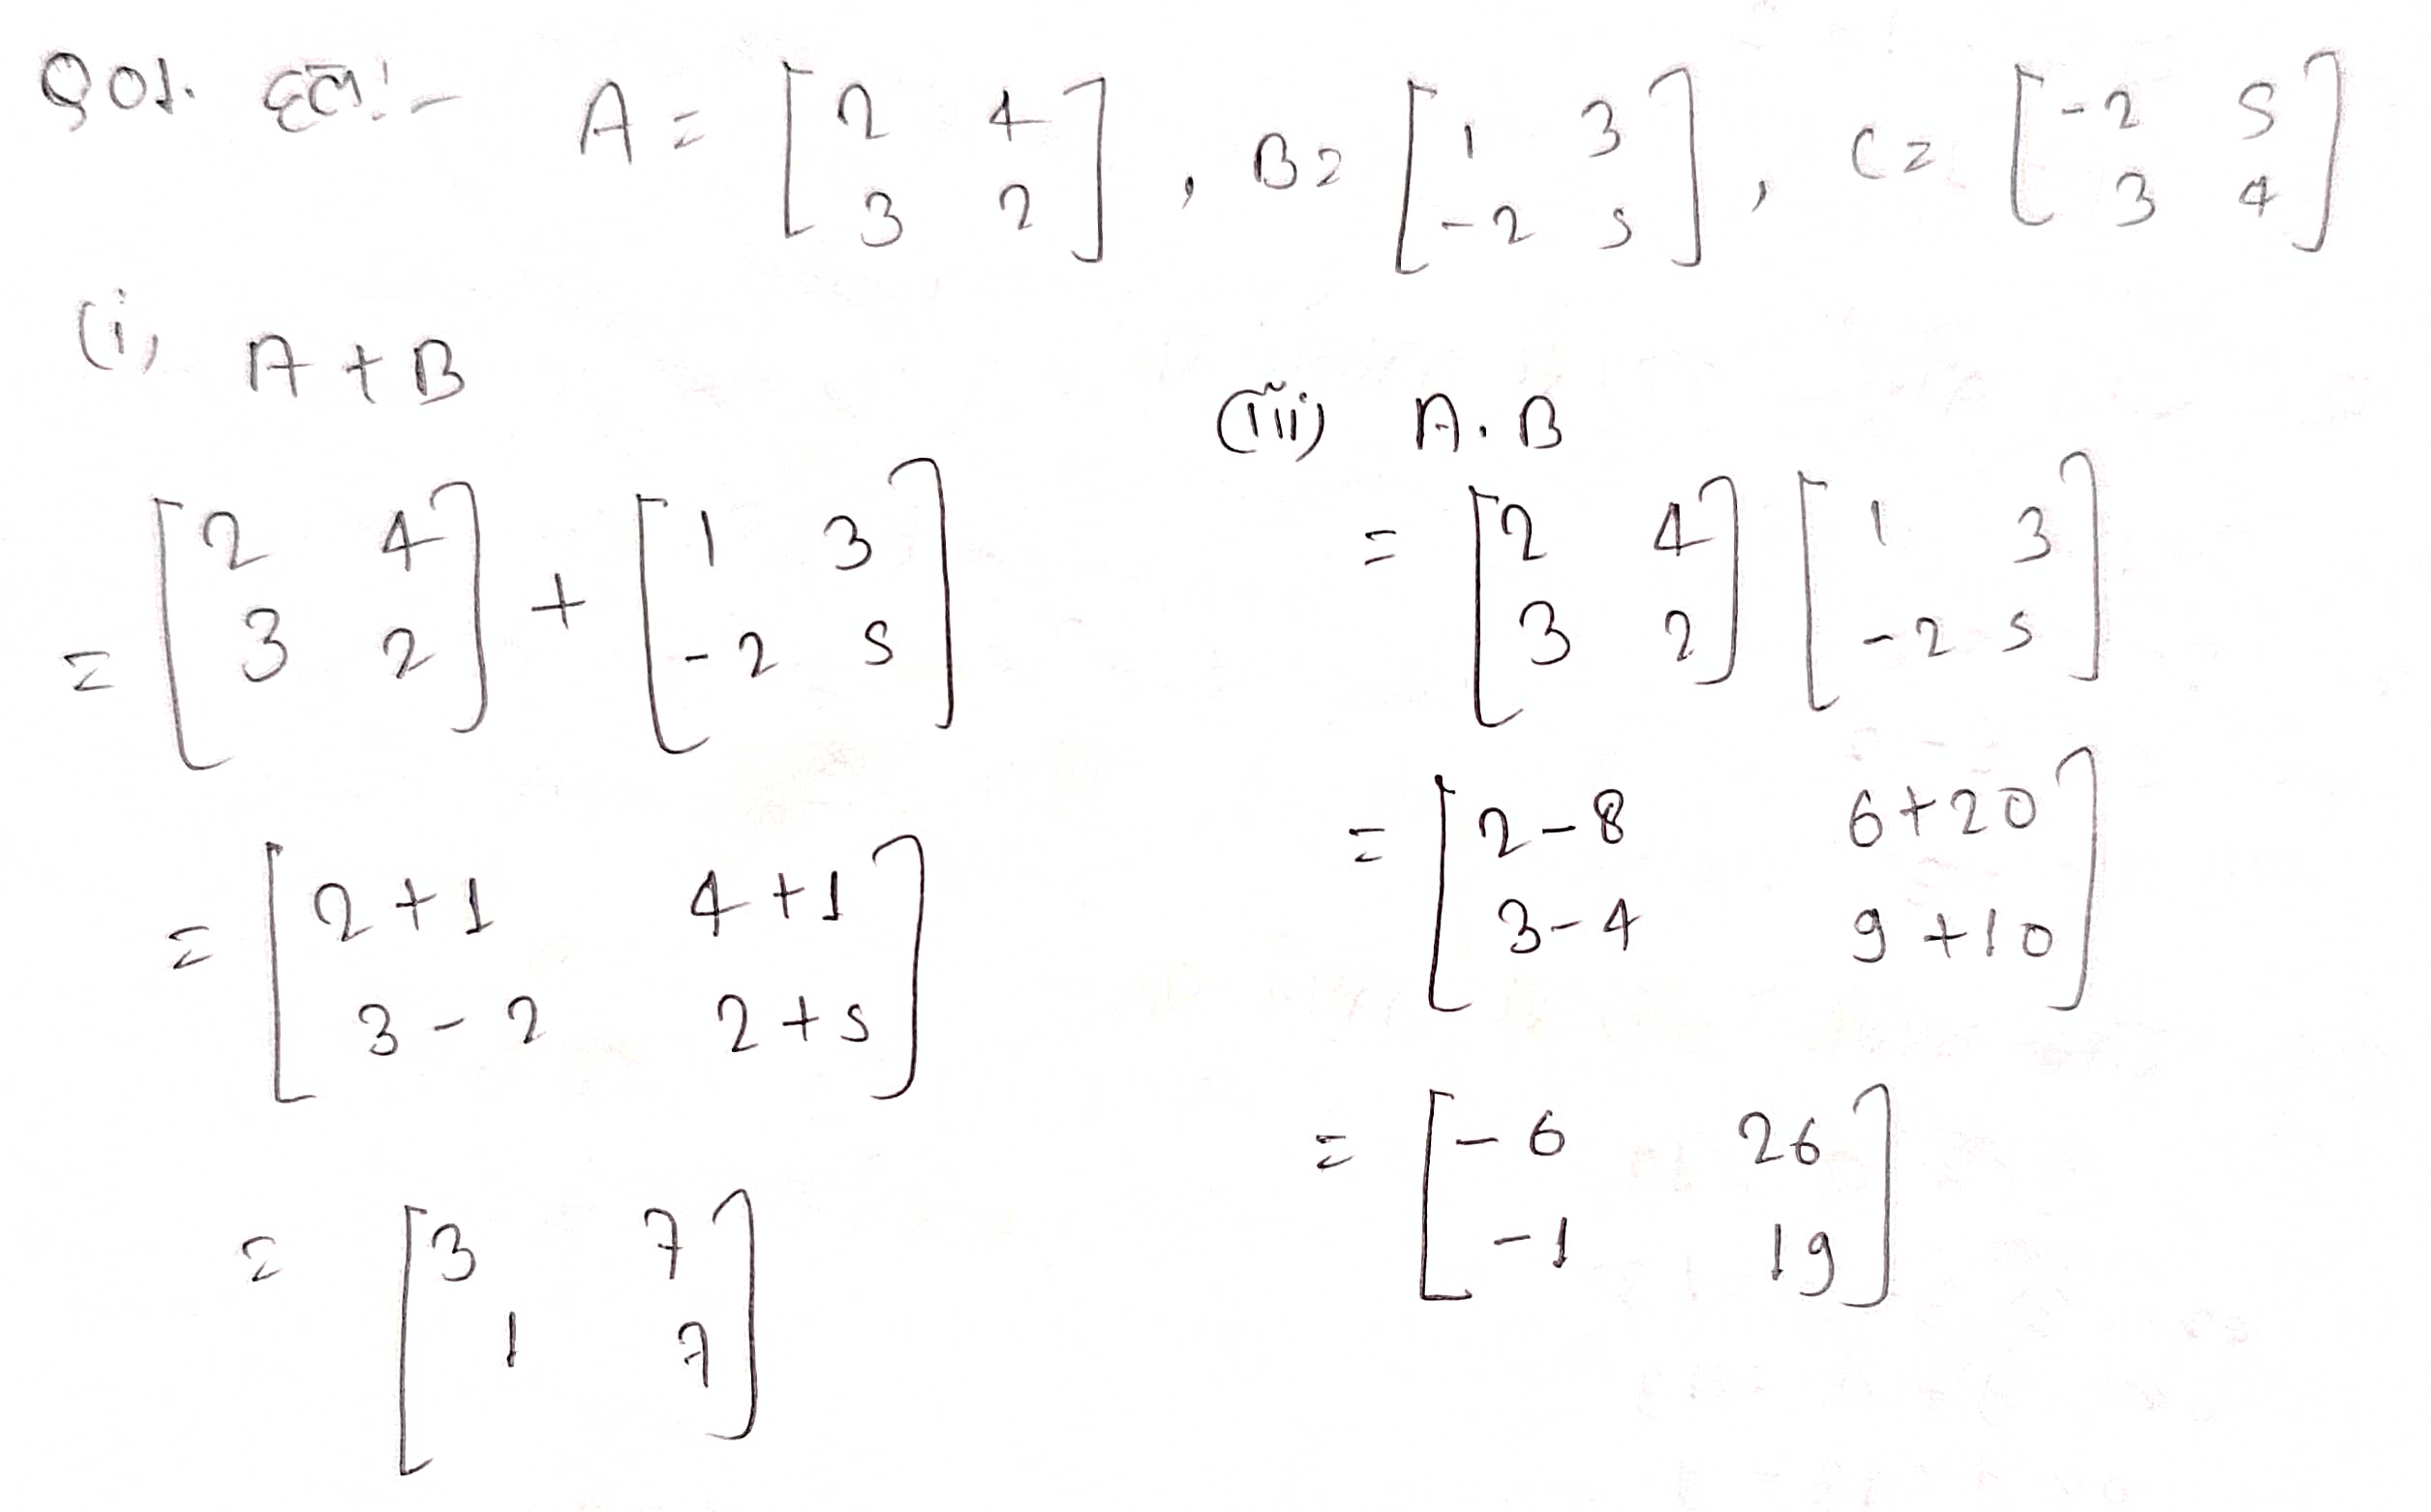 Q01. हल:- A = [2 4 3 2], B = [1 3 -2 5], C = [-2 5 3 4]
(i) A + B
= [2 4 3 2] + [1 3 -2 5]
= [2+1 4+1 3-2 2+5]
= [3 7 1 7]
(iii) A.B
= [2 4 3 2] [1 3 -2 5]
= [2-8 6+20 3-4 9+10]
= [-6 26 -1 19]